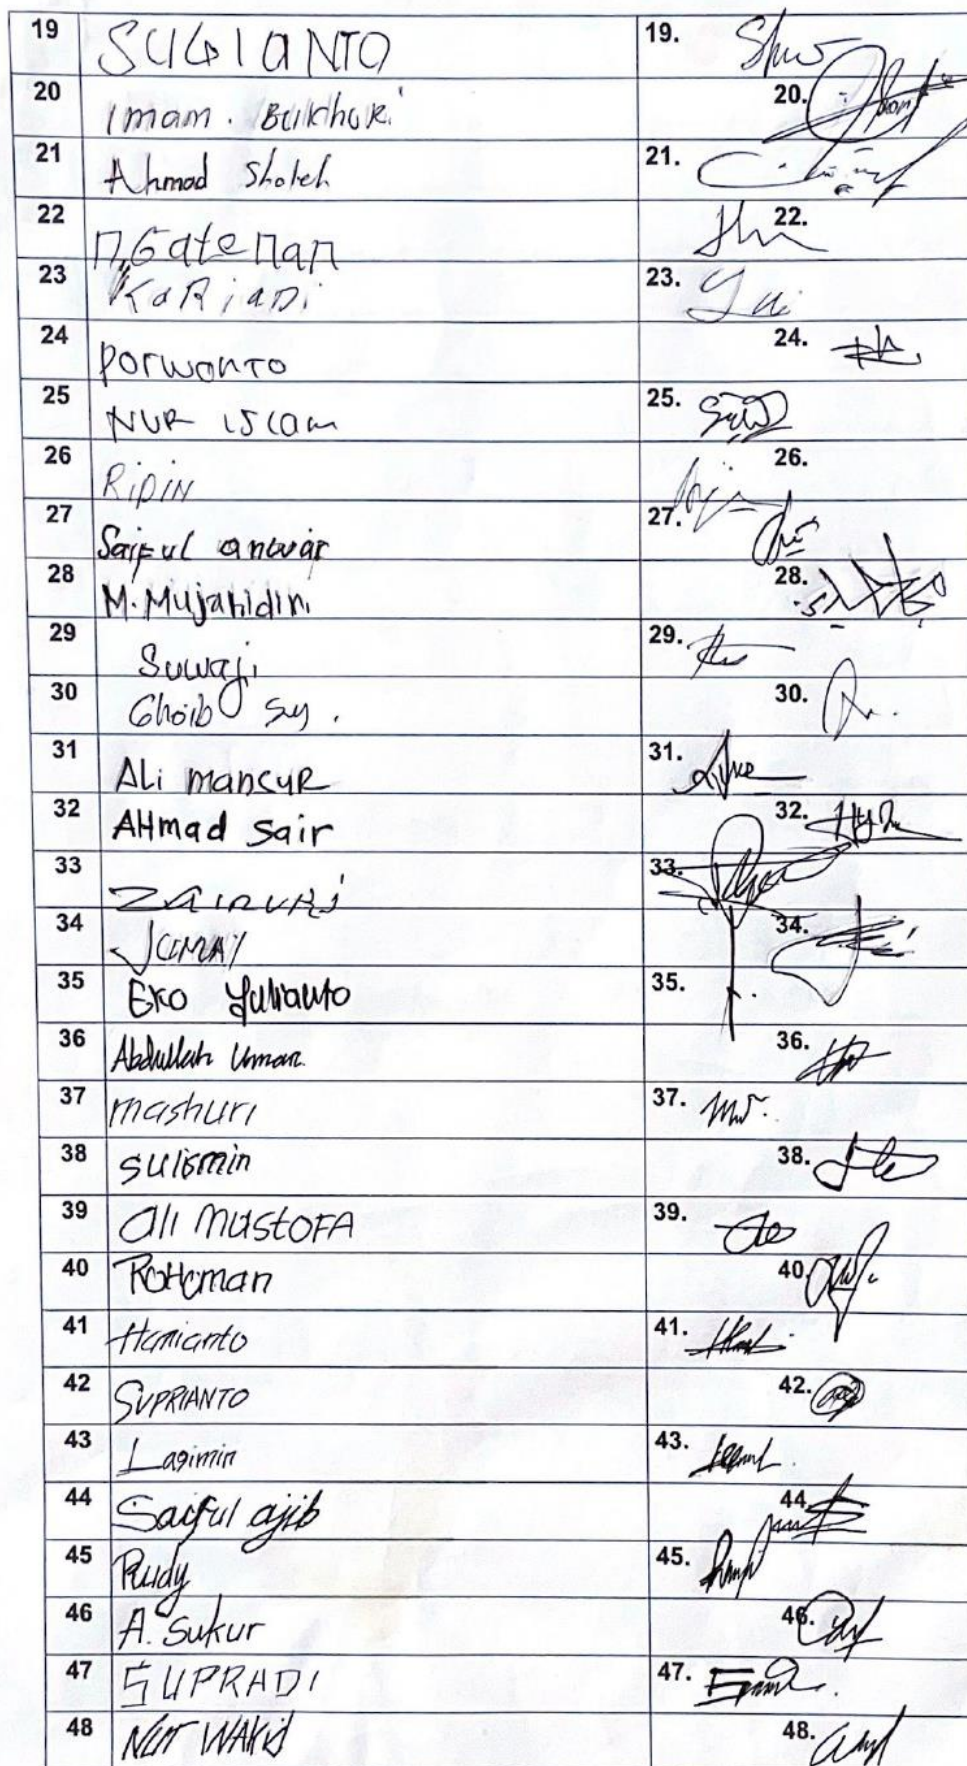 19 SUGIANTO 19.
20 Imam . Bukhori 20.
21 Ahmad Sholeh 21.
22 NGateman 22.
23 KaRjaDi 23.
24 Porwanto 24.
25 NUR ISLam 25.
26 RiPiN 26.
27 Saiful anwar 27.
28 M. Mujahidin 28.
29 Suwaji 29.
30 Ghoib Sy . 30.
31 ALi mansuR 31.
32 AHmad Sair 32.
33 ZainuRi 33.
34 JUMAY 34.
35 Eko Yulianto 35.
36 Abdullah Umar. 36.
37 mashuri 37.
38 sulismin 38.
39 Ali MUSTOFA 39.
40 Rohman 40.
41 Harianto 41.
42 SUPRIANTO 42.
43 Lagimin 43.
44 Saiful ajib 44.
45 Rudy 45.
46 A. Sukur 46.
47 SUPRADI 47.
48 NUR WAKid 48.